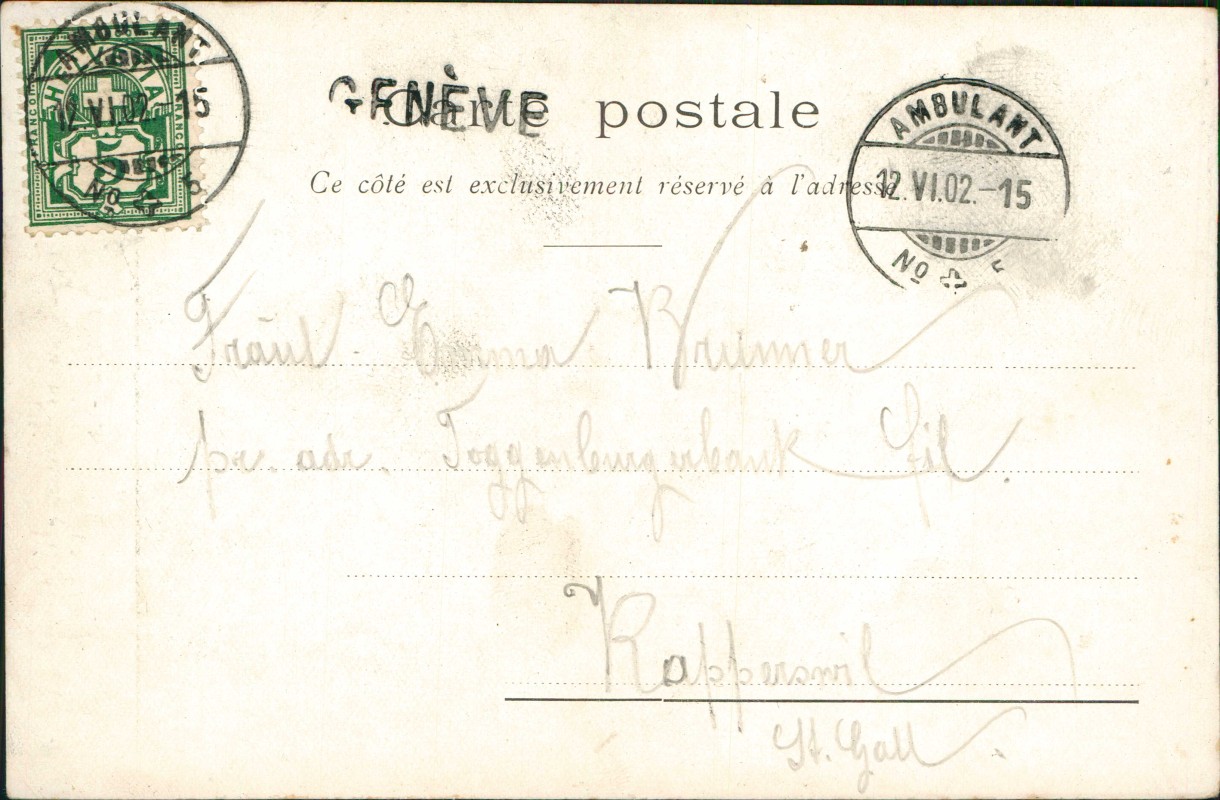 HELVETIA
FRANCO
FRANCO
5
AMBULANT
12.VI.02.-15
No 5
GENÈVE
Carte postale
Ce côté est exclusivement réservé à l'adresse.
AMBULANT
12.VI.02.-15
No
Fräul. Emma Brunner
pr. adr. Toggenburgerbank Fil.
Rapperswil
St. Gall